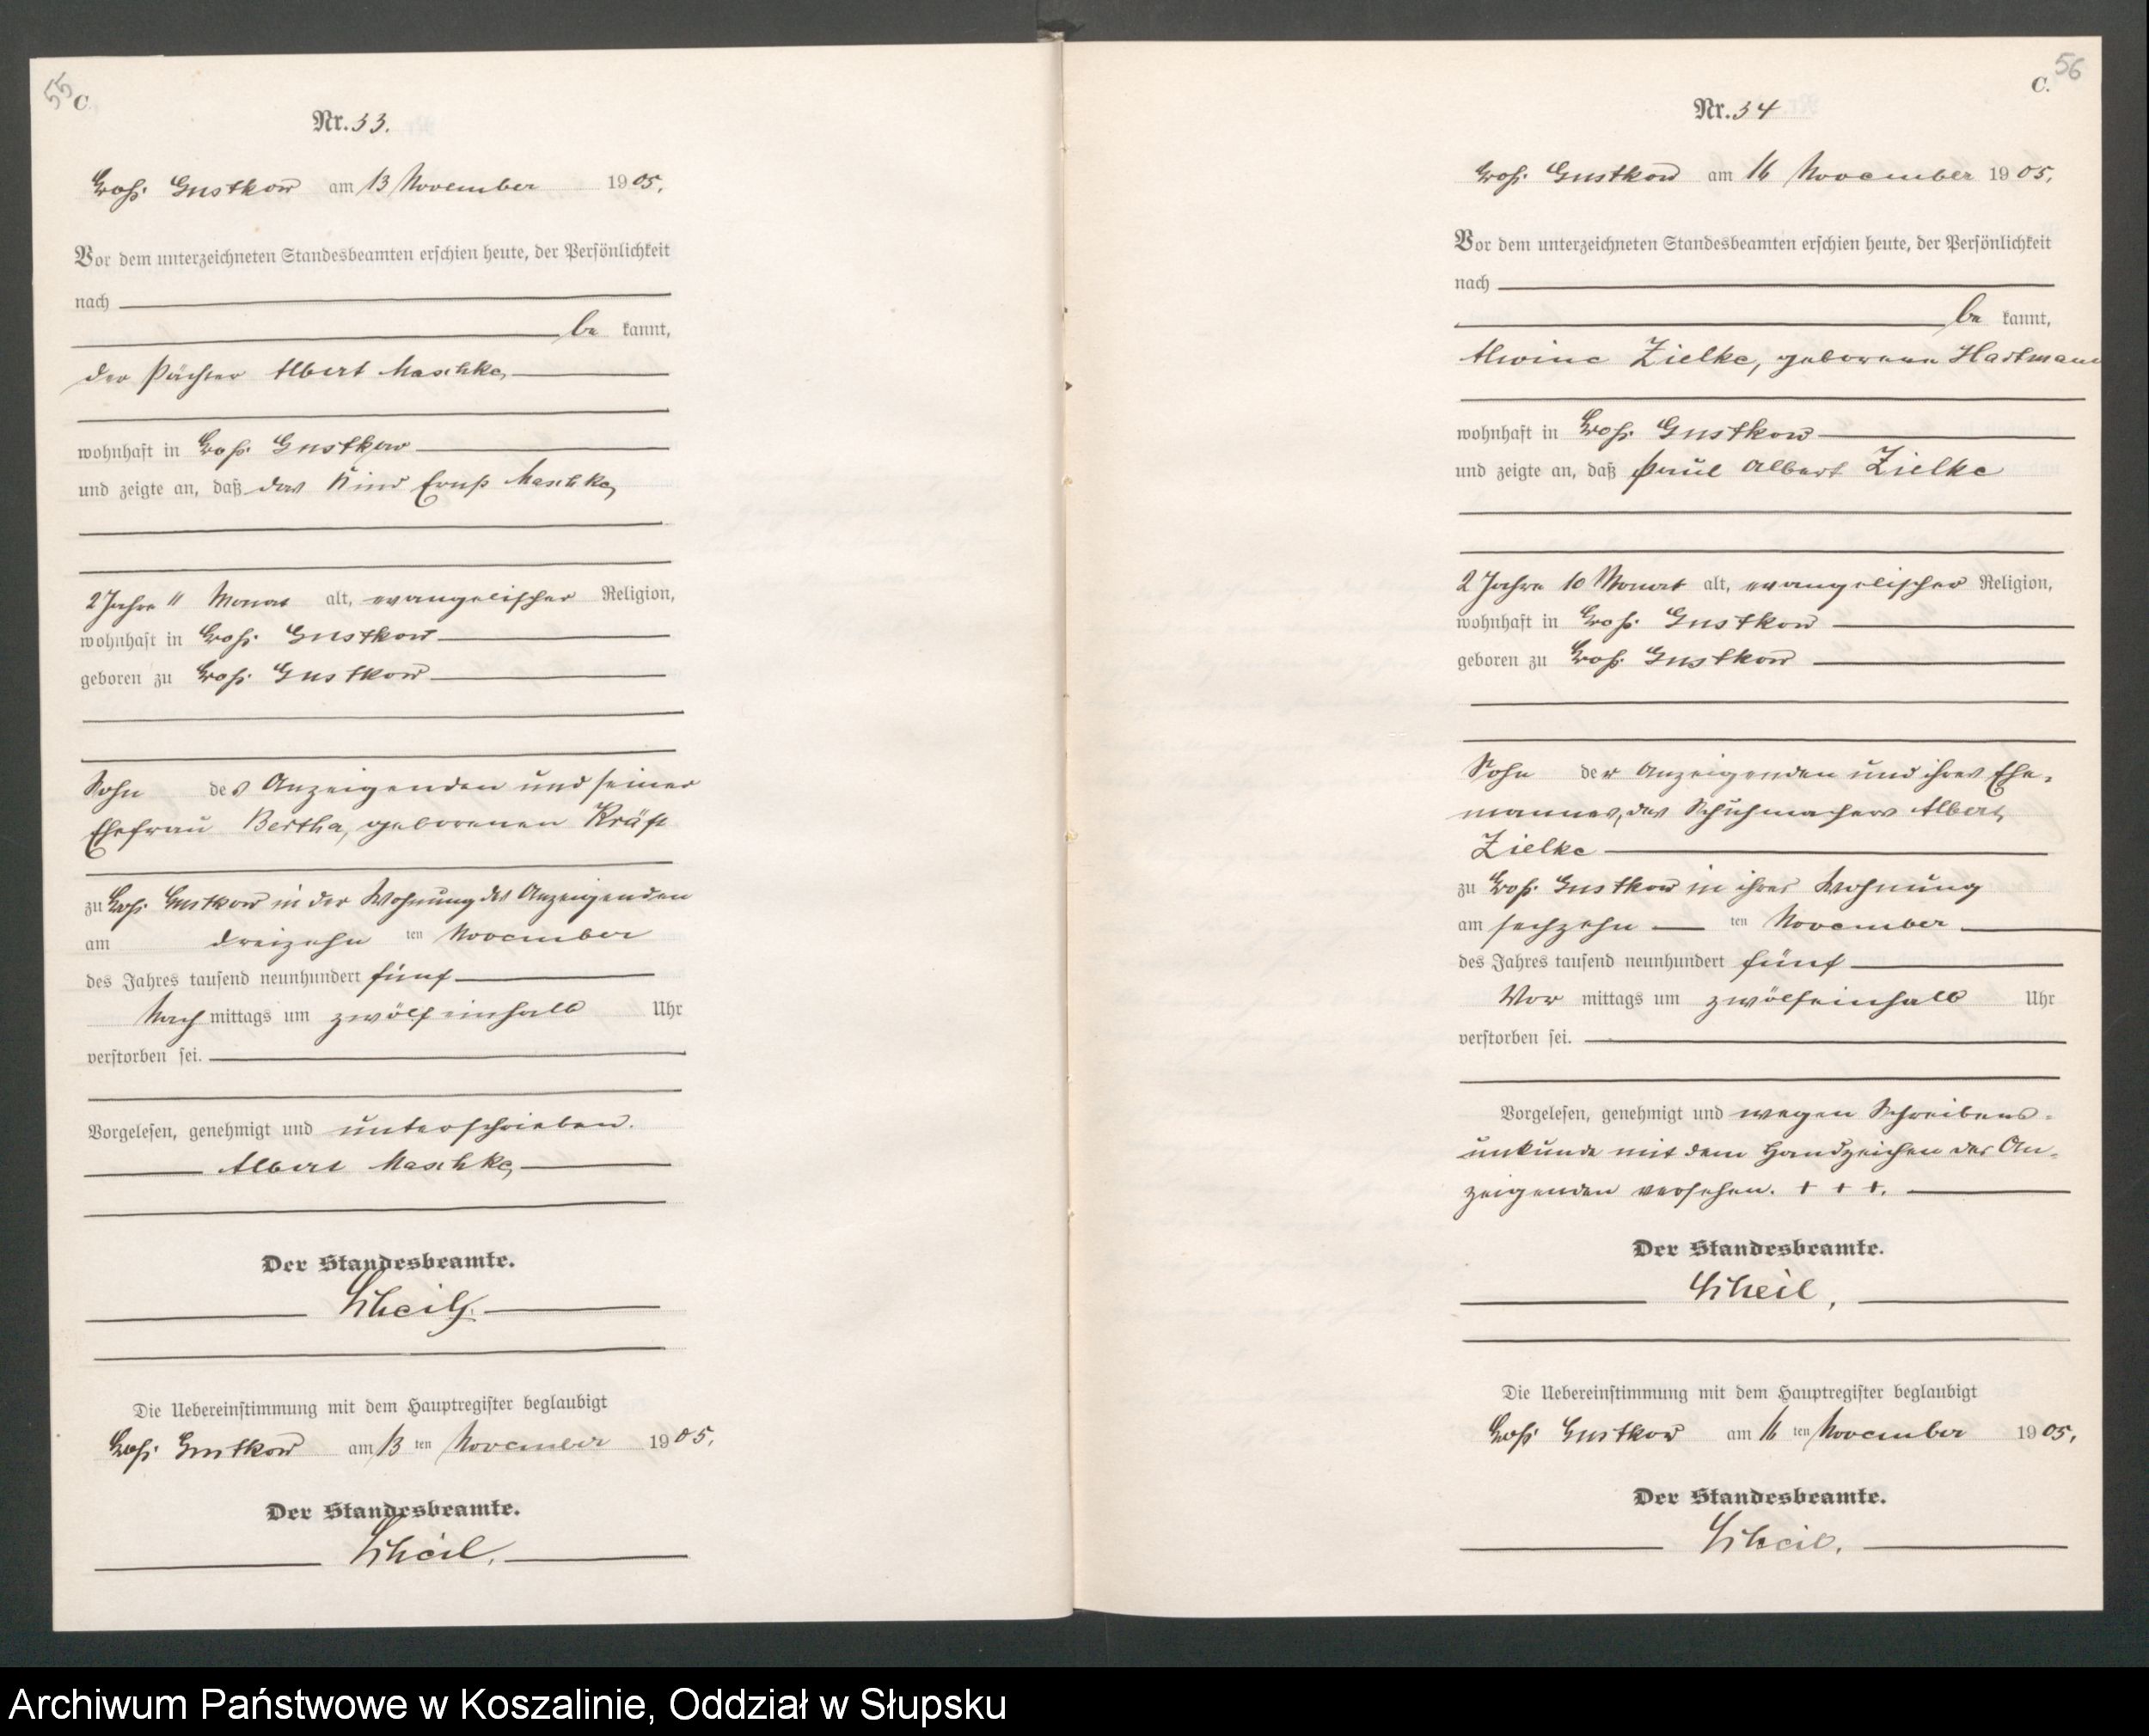 55
C
Nr. 33.
Groß Gustkow am 13 November 1905.
Vor dem unterzeichneten Standesbeamten erschien heute, der Persönlichkeit
nach
be kannt,
der Pächter Albert Maschke,
wohnhaft in Groß Gustkow
und zeigte an, daß das Kind Ernst Maschke,
2 Jahre 11 Monat alt, evangelischer Religion,
wohnhaft in Groß Gustkow
geboren zu Groß Gustkow
Sohn des Anzeigenden und seiner
Ehefrau Bertha, geborenen
zu Groß Gustkow in der Wohnung des Anzeigenden
am dreizehn ten November
des Jahres tausend neunhundert fünf
Nach mittags um zwölfeinhalb Uhr
verstorben sei.
Vorgelesen, genehmigt und unterschrieben.
Albert Maschke,
Der Standesbeamte.
Scheil.
Die Uebereinstimmung mit dem Hauptregister beglaubigt
Groß Gustkow am 13 ten November 1905.
Der Standesbeamte.
Scheil.
56
C.
Nr. 34
Groß Gustkow am 16 November 1905.
Vor dem unterzeichneten Standesbeamten erschien heute, der Persönlichkeit
nach
be kannt,
Alwine Zielke, geborene Hartmann
wohnhaft in Groß Gustkow
und zeigte an, daß Paul Albert Zielke
2 Jahre 10 Monat alt, evangelischer Religion,
wohnhaft in Groß Gustkow
geboren zu Groß Gustkow
Sohn der Anzeigenden und ihres Ehe-
mannes, des Schuhmachers Albert
Zielke
zu Groß Gustkow in ihrer Wohnung
am sechzehn ten November
des Jahres tausend neunhundert fünf
Vor mittags um zwölfeinhalb Uhr
verstorben sei.
Vorgelesen, genehmigt und wegen Schreibens-
unkunde mit dem Handzeichen der An-
zeigenden versehen. + + +.
Der Standesbeamte.
Scheil,
Die Uebereinstimmung mit dem Hauptregister beglaubigt
Groß Gustkow am 16 ten November 1905.
Der Standesbeamte.
Scheil.
Archiwum Państwowe w Koszalinie, Oddział w Słupsku